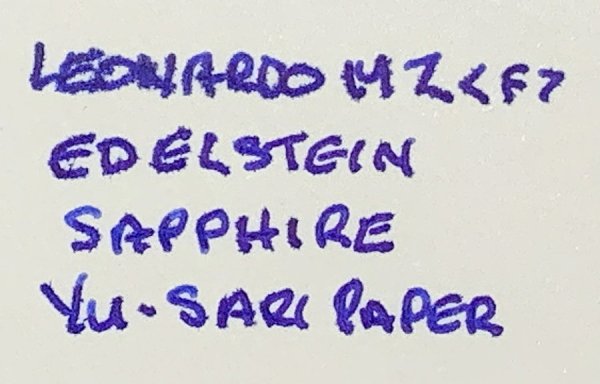 LEONARDO MZ<F>
EDELSTEIN
SAPPHIRE
YU-SARI PAPER